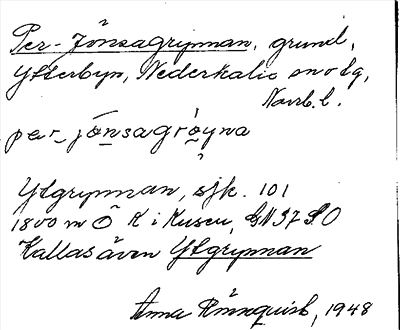 Per-Jönsagrynnan, grund,
Ytterbyn, Nederkalix snvdg,
Norrb. l.
pær_jönsagrôyna
Ytgrynnan, sjk. 101
1800 m Ö K i Kusen, GN 37 SO
Kallas även Ytgrynnan
Anna Rönnquist, 1948